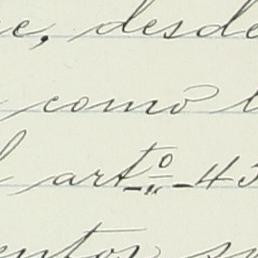 e, desde
como
artº 43
entos